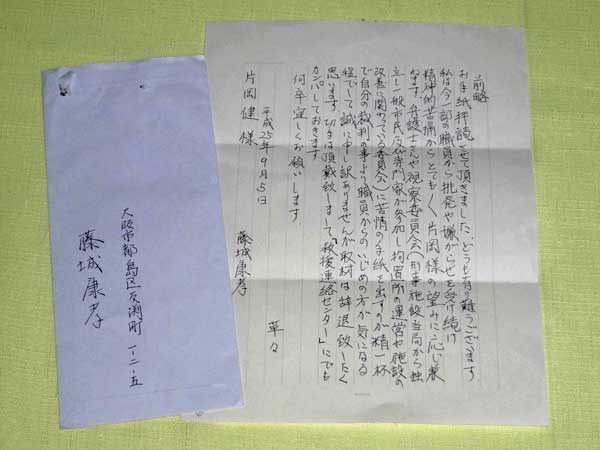 前略
お手紙拝読させて頂きました、どうも有り難うございます
私は今一部の職員から挑発や嫌がらせを受け続け
精神的苦痛からとても〱片岡様の望みに応じ兼
ねます 弁護士さんや視察委員会(刑事施設当局から独
立し一般市民及び専門家が参加し拘置所の運営や施設の
改善に関わってくる委員会)に苦情の手紙を出すのが精一杯
で自分の裁判の事より職員からのいじめの方が気になる
程でして誠に申し訳ありませんが取材は辞退致したく
思います。切手は頂戴致しまして「救援連絡センター」にでも
カンパしておきます
何卒宜しくお願いします
草々
平成25年9月5日
藤城康孝
片岡健様
大阪市都島区友渕町一-二-五
藤城康孝